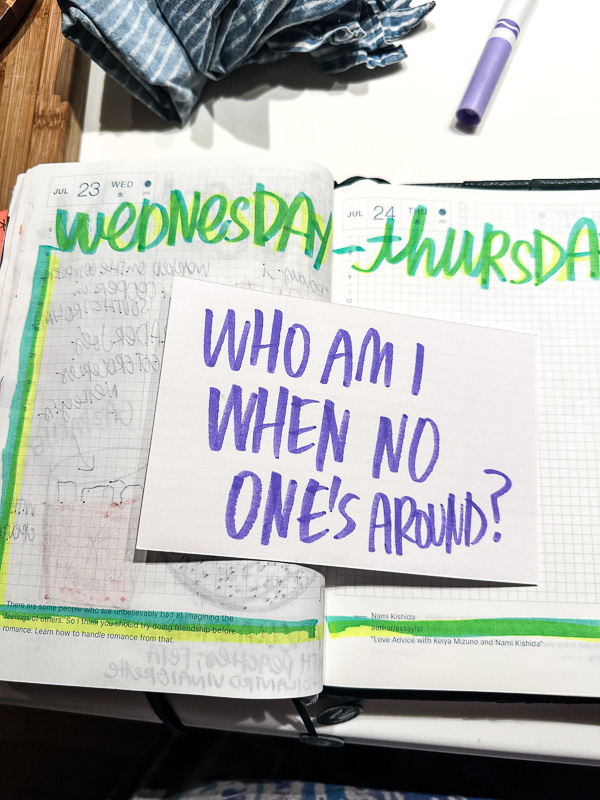 JUL 23 WED
WEDNESDAY
JUL 24 THU
-THURSDA
WHO AM I
WHEN NO
ONE'S AROUND?
There are some people who are unbelievably bad at imagining the
feelings of others. So I think you should try doing friendship before
romance. Learn how to handle romance from that.
Nami Kishida
author/essayist
"Love Advice with Keiya Mizuno and Nami Kishida"